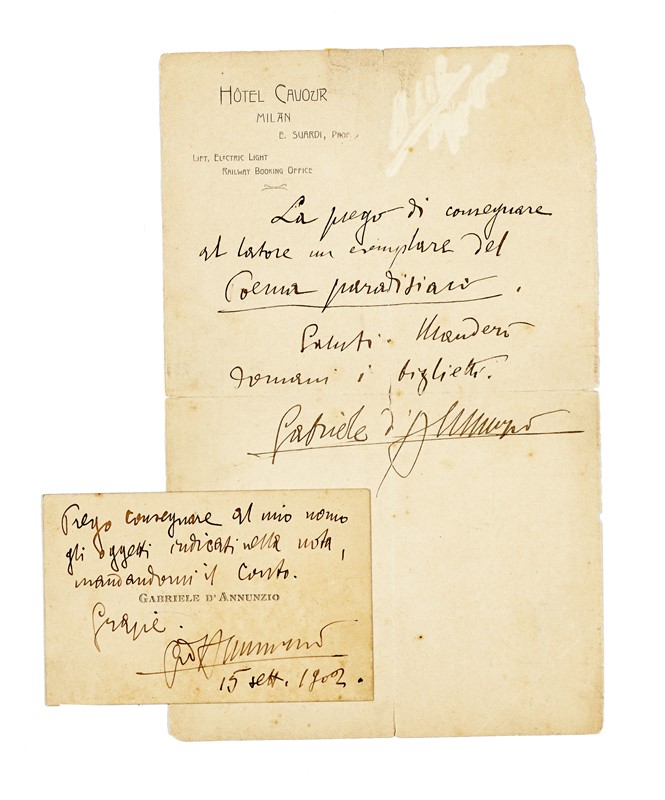 HÔTEL CAVOUR
MILAN
E. SUARDI, PROP.
LIFT, ELECTRIC LIGHT
RAILWAY BOOKING OFFICE
La prego di consegnare
al latore un esemplare del
Poema paradisiaco.
Saluti. Manderò
domani i biglietti.
Gabriele d'Annunzio
Prego consegnare al mio nome
gli oggetti indicati nella nota,
mandandomi il conto.
GABRIELE D'ANNUNZIO
Grazie.
GdAnnunzio
15 sett. 1902.